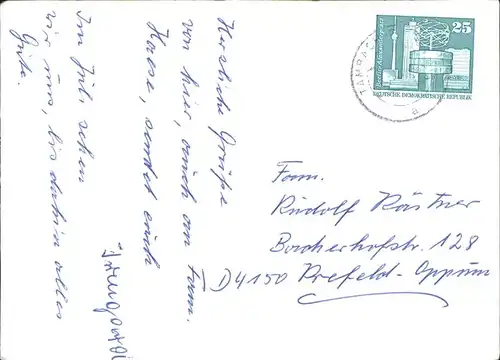 Herzliche Grüße
von hier, auch an Fam.
Haese, sendet euch
Im Juli sehen
wir uns, bis dahin alles
Gute.
25
Berlin-Alexanderplatz
DEUTSCHE DEMOKRATISCHE REPUBLIK
TAMBAC
a
Fam.
Rudolf Kästner
Bacherhofstr. 128
D4150 Krefeld-Oppum